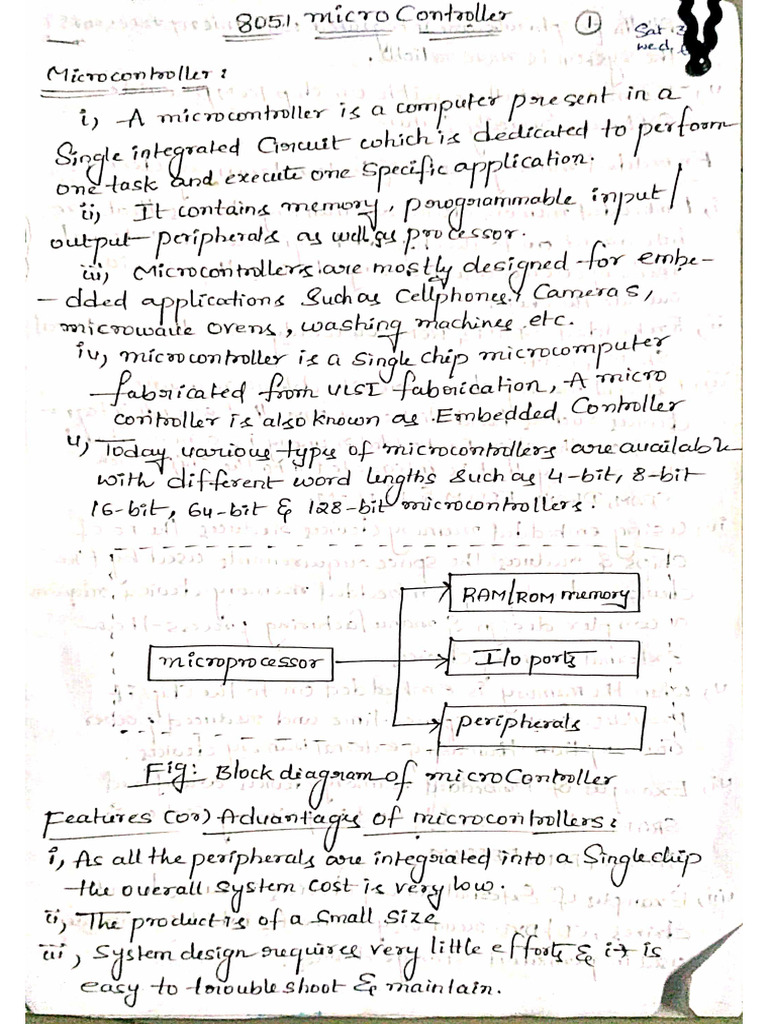 8051. micro Controller
1
Sat
wed,
Microcontroller :
i) A microcontroller is a computer present in a
Single integrated Circuit which is dedicated to perform
one task and execute one Specific application.
ii) It contains memory, programmable input/
output peripherals as well as processor.
iii) Microcontrollers are mostly designed for embe-
-dded applications Such as Cellphones, Cameras,
microwave ovens, washing machines etc.
iv) microcontroller is a Single chip microcomputer
fabricated from VLSI fabrication, A micro
controller is also known as Embedded Controller
v) Today various types of microcontrollers are available
with different word lengths Such as 4-bit, 8-bit
16-bit, 64-bit & 128-bit microcontrollers.
RAM/ROM memory
microprocessor
I/o ports
peripherals
Fig: Block diagram of micro Controller
Features (or) Advantages of microcontrollers:
i, As all the peripherals are integrated into a Single chip
the overall System cost is very low.
ii, The product is of a Small Size
iii, System design requires very little efforts & it is
easy to trouble shoot & maintain.